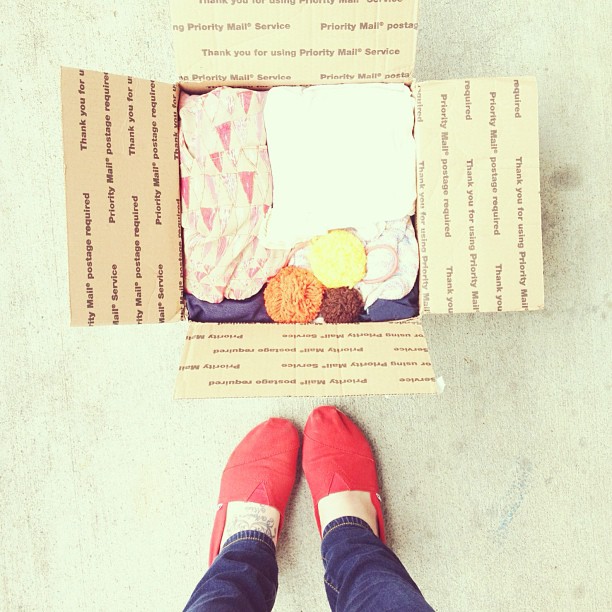 Thank you for using Priority Mail® Service
ng Priority Mail® Service Priority Mail® postag
Thank you for using Priority Mail® Service
g Priority Mail® Service Priority Mail® posta
Thank you for u
Mail® postage required
Thank you for u
Priority Mail® Service
Priority Mail® postage required
Thank you for u
Priority Mail® postage required
required
Thank you for using Priority Mail®
required
Priority Mail® postage required
Thank you for using Priority Mail®
Priority Mail® postage required
Thank you
required
Thank you for using Priority Mail® Service
Service Priority Mail®
or using Priority Mail® Service
required Priority Mail
Service Priority Mail® Service
Priority Mail® postage required